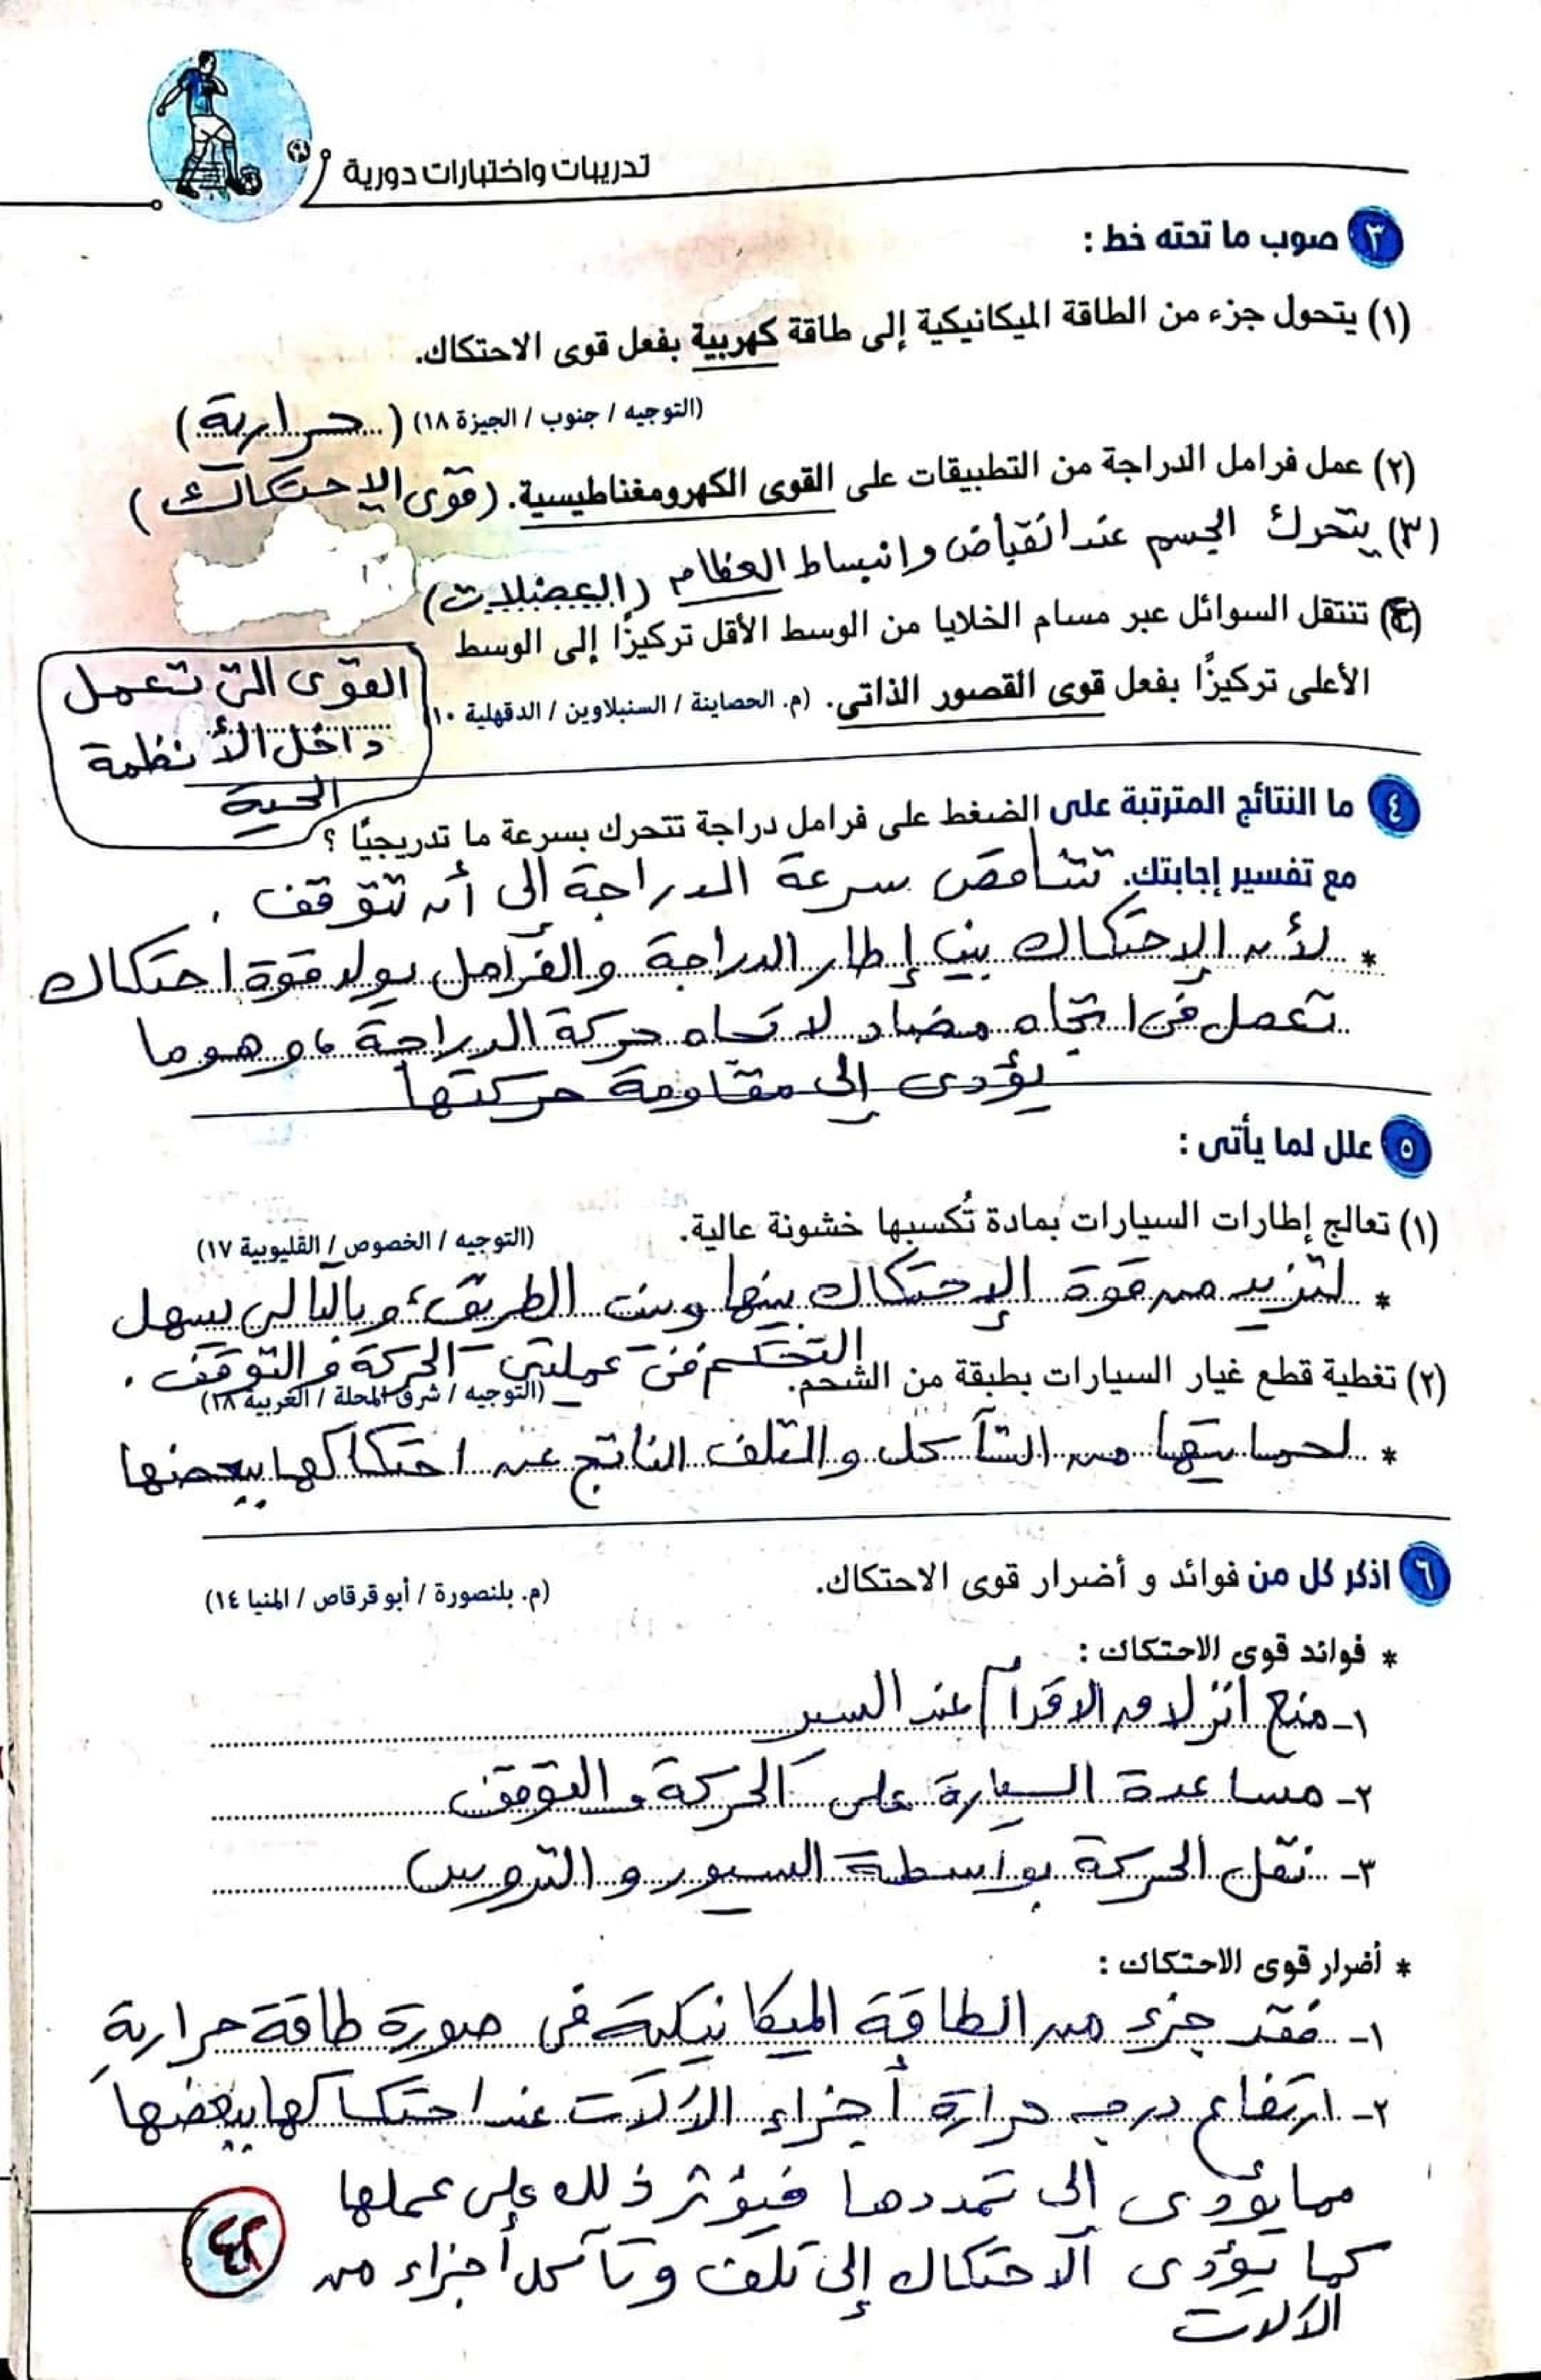 تدريبات واختبارات دورية
٣ صوب ما تحته خط :
(١) يتحول جزء من الطاقة الميكانيكية إلى طاقة كهربية بفعل قوى الاحتكاك.
(التوجيه / جنوب / الجيزة ١٨) (حرارية)
(٢) عمل فرامل الدراجة من التطبيقات على القوى الكهرومغناطيسية. (قوى الإحتكاك)
(٣) يتحرك الجسم عند انقباض وانبساط العظام (العضلات)
(٤) تنتقل السوائل عبر مسام الخلايا من الوسط الأقل تركيزًا إلى الوسط
الأعلى تركيزًا بفعل قوى القصور الذاتى. (م. الحصاينة / السنبلاوين / الدقهلية ١٠)
القوى التى تعمل
داخل الأنظمة
الحية
٤ ما النتائج المترتبة على الضغط على فرامل دراجة تتحرك بسرعة ما تدريجيًا ؟
مع تفسير إجابتك. تتناقص سرعة الدراجة إلى أن تتوقف .
* لأن الإحتكاك بين إطار الدراجة والفرامل يولد قوة احتكاك
تعمل فى اتجاه مضاد لاتجاه حركة الدراجة ، وهو ما
يؤدى إلى مقاومة حركتها
٥ علل لما يأتى :
(١) تعالج إطارات السيارات بمادة تُكسبها خشونة عالية.
(التوجيه / الخصوص / القليوبية ١٧)
* لتزيد من قوة الإحتكاك بينها وبين الطريق، وبالتالى يسهل
التحكم فى عمليتى الحركة والتوقف .
(٢) تغطية قطع غيار السيارات بطبقة من الشحم.
(التوجيه / شرق المحلة / الغربية ١٨)
* لحمايتها من التآكل والتلف الناتج عن احتكاكها ببعضها
٦ اذكر كل من فوائد و أضرار قوى الاحتكاك.
(م. بلنصورة / أبو قرقاص / المنيا ١٤)
* فوائد قوى الاحتكاك :
١- منع انزلاق الاقدام عند السير
٢- مساعدة السيارة على الحركة والتوقف
٣- نقل الحركة بواسطة السيور والتروس
* أضرار قوى الاحتكاك :
١- فقد جزء من الطاقة الميكانيكية فى صورة طاقة حرارية
٢- ارتفاع درجه حرارة أجزاء الآلات عند احتكاكها ببعضها
مما يؤدى إلى تمددها فيؤثر ذلك على عملها
كما يؤدى الاحتكاك إلى تلف وتآكل أجزاء من
الآلات
٤٢